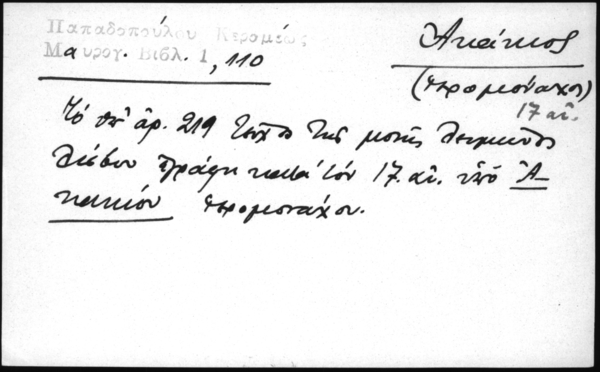 Παπαδοπούλου Κεραμέως
Μαυρογ. Βιβλ. 1, 110
Ἀκάκιος
(ἱερομονάχος)
17 αἰ.
Τό ὑπ' ἀρ. 219 τεῦχος τῆς μονῆς Λειμῶνος
Λέσβου ἐγράφη κατά τόν 17. αἰ. ὑπό Ἀ-
κακίου ἱερομονάχου.